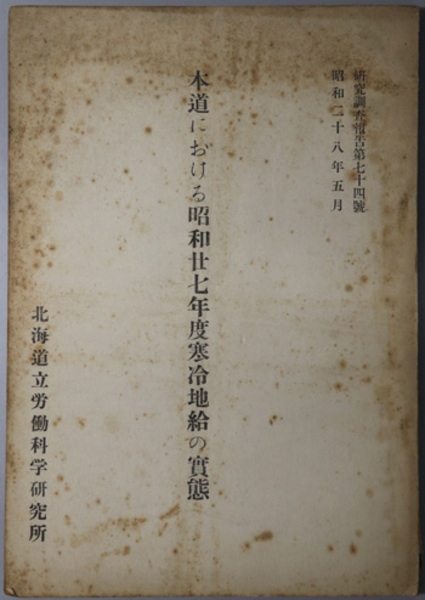 研究調査報告第七十四號
昭和二十八年五月
本道における昭和廿七年度寒冷地給の實態
北海道立労働科学研究所